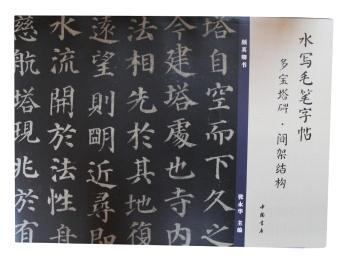 水写毛笔字帖
多宝塔碑·间架结构
颜真卿书
张永华 主编
中国书店
塔自空而下久之
今建塔處也寺内
法相先於其地復
遠望則明近尋即
水流開於法性舟
慈航塔現兆於有